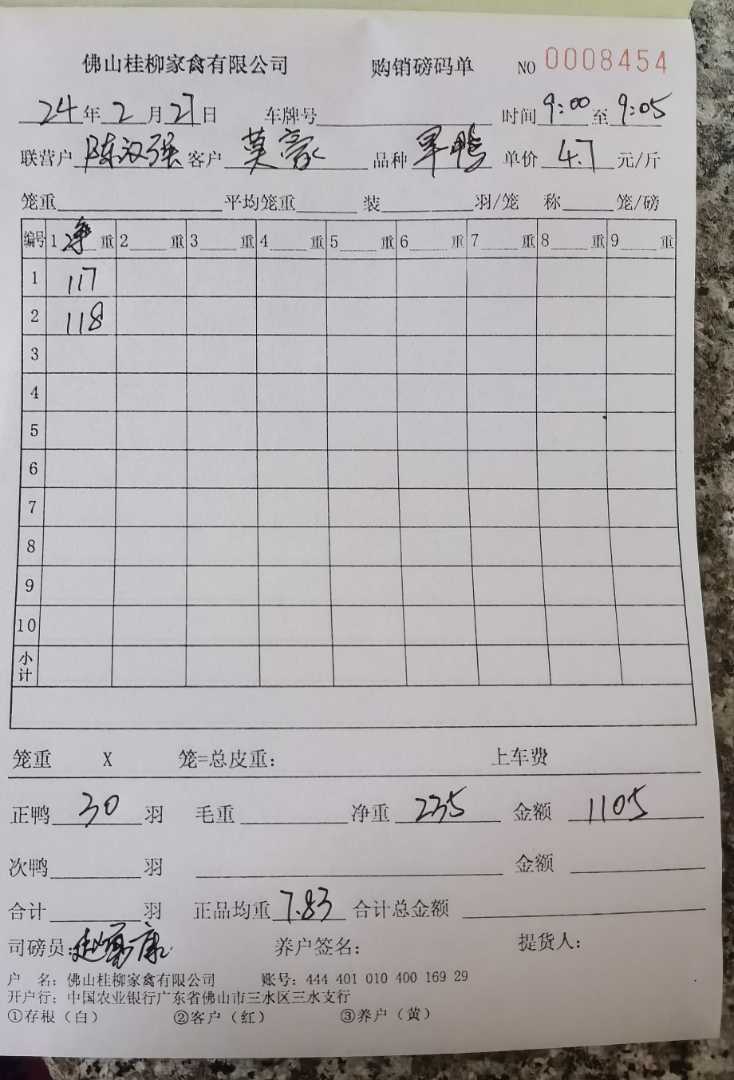 佛山桂柳家禽有限公司 购销磅码单 NO 0008454
24年2月27日 车牌号 时间9:00至9:05
联营户 陈汉强 客户 莫豪 品种 旱鸭 单价 4.7 元/斤
笼重 平均笼重 装 羽/笼 称 笼/磅
编号 1 净 重 2 重 3 重 4 重 5 重 6 重 7 重 8 重 9 重
1 117
2 118
3
4
5
6
7
8
9
10
小计
笼重 X 笼=总皮重: 上车费
正鸭 30 羽 毛重 净重 235 金额 1105
次鸭 羽 金额
合计 羽 正品均重 7.83 合计总金额
司磅员: 养户签名: 提货人:
户 名: 佛山桂柳家禽有限公司 账号: 444 401 010 400 169 29
开户行: 中国农业银行广东省佛山市三水区三水支行
①存根(白) ②客户(红) ③养户(黄)